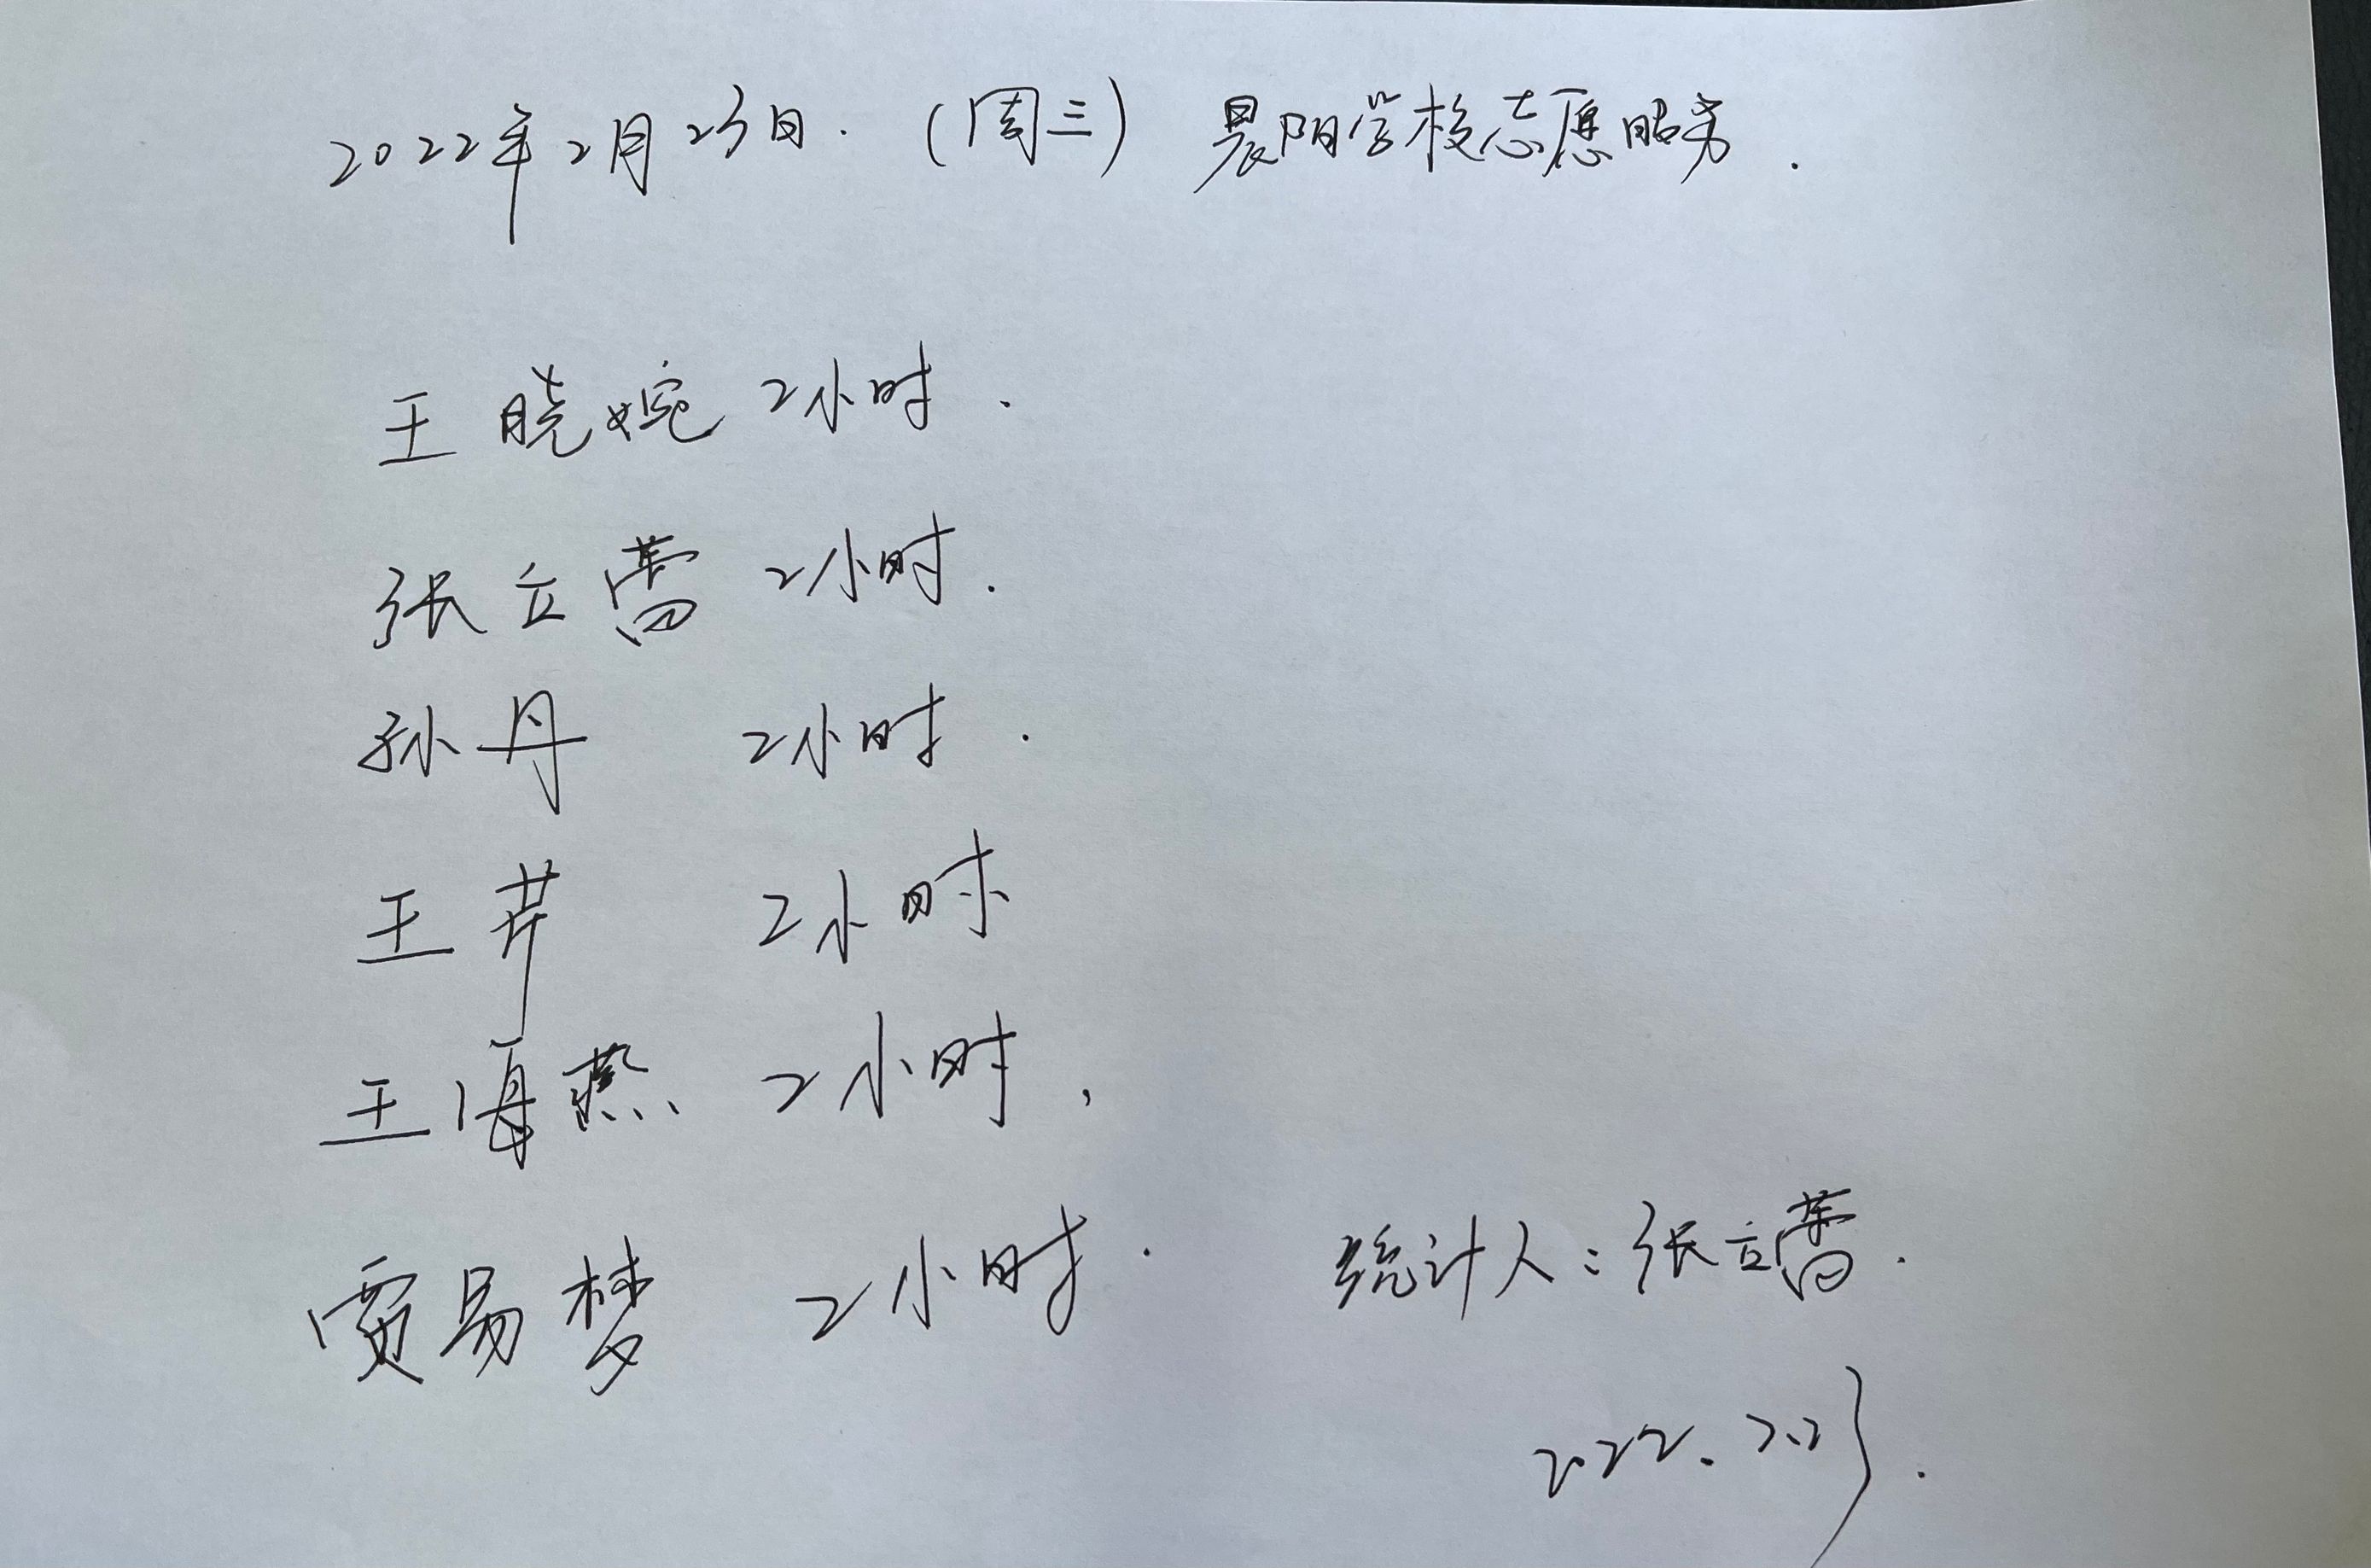 2022年2月23日.(周三) 晨阳学校志愿服务.
王晓婉 2小时.
张立蕾 2小时.
孙丹 2小时.
王芹 2小时
王海燕 2小时.
贾易梦 2小时.
统计人:张立蕾.
2022.2.23.